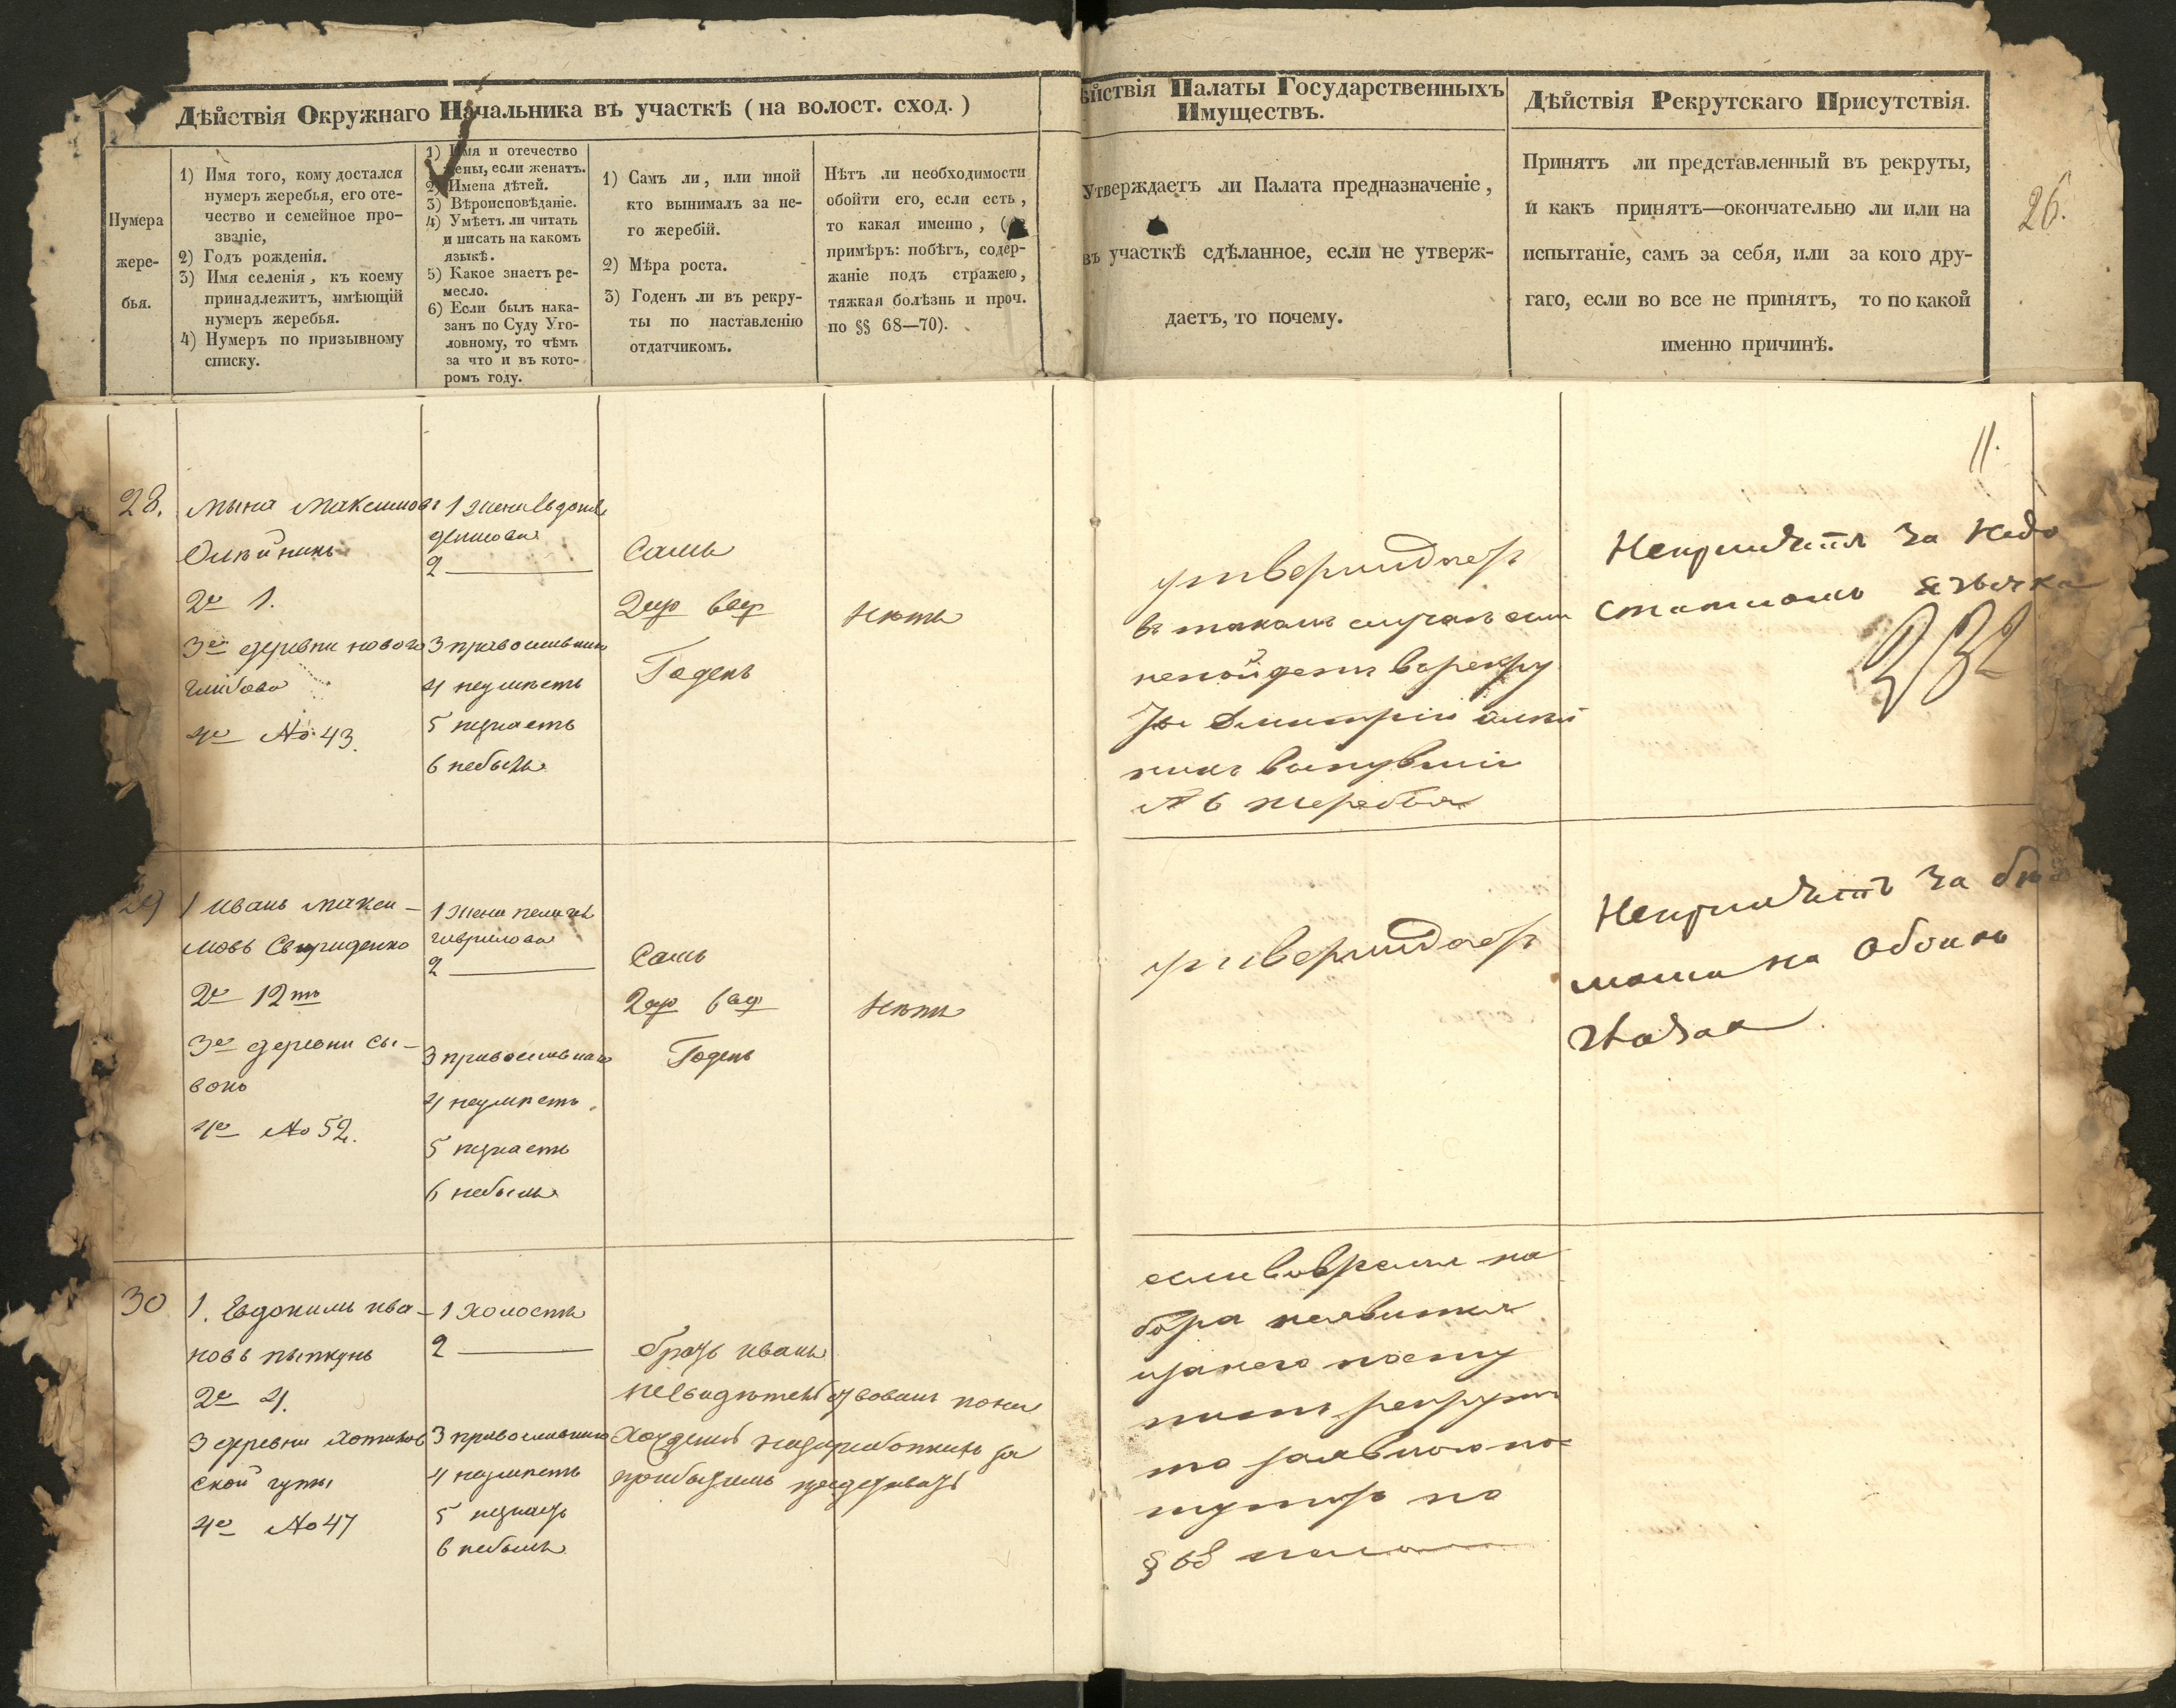 Дѣйствія Окружнаго Начальника въ участкѣ (на волост. сход.)
Нумера
жере-
бья.
1) Имя того, кому достался
нумеръ жеребья, его оте-
чество и семейное про-
званіе,
2) Годъ рожденія.
3) Имя селенія, къ коему
принадлежитъ, имѣющій
нумеръ жеребья.
4) Нумеръ по призывному
списку.
1) Имя и отечество
жены, если женатъ.
2) Имена дѣтей.
3) Вѣроисповѣданіе.
4) Умѣетъ ли читать
и писать на какомъ
языкѣ.
5) Какое знаетъ ре-
месло.
6) Если былъ нака-
занъ по Суду Уго-
ловному, то чѣмъ
за что и въ кото-
ромъ году.
1) Самъ ли, или иной
кто вынималъ за не-
го жеребій.
2) Мѣра роста.
3) Годенъ ли въ рекру-
ты по наставленію
отдатчикомъ.
Нѣтъ ли необходимости
обойти его, если есть,
то какая именно,
примѣръ: побѣгъ, содер-
жаніе подъ стражею,
тяжкая болѣзнь и проч.
по §§ 68—70).
ѣйствія Палаты Государственныхъ
Имуществъ.
Утверждаетъ ли Палата предназначеніе,
въ участкѣ сдѣланное, если не утверж-
даетъ, то почему.
Дѣйствія Рекрутскаго Присутствія.
Принятъ ли представленный въ рекруты,
и какъ принятъ—окончательно ли или на
испытаніе, самъ за себя, или за кого дру-
гаго, если во все не принятъ, то по какой
именно причинѣ.
26.
11.
28.
Мина Максимовъ
Олѣйникъ
2е 1.
3е деревни нового
глибова
4е № 43.
1 жена Евдокія
денисова
2
3 православнаго
4 неумѣетъ
5 незнаетъ
6 небылъ
Самъ
2ар 6вер
Годенъ
Нѣтъ
утверждаетъ
въ такомъ случаѣ если
непойдетъ въ рекру
ты Дмитрій Олѣй
никъ вынувшій
№ 6 жеребья
Непринятъ за недо
статкомъ язычка
29
1 Иванъ Макси-
мовъ Свириденко
2е 12ть
3е деревни Сы-
вокъ
4е № 52.
1 Жена пелагея
гаврилова
2
3 православнаго
4 неумѣетъ.
5 незнаетъ
6 небылъ
Самъ
2ар 6вер
Годенъ
Нѣтъ
утверждаетъ
Непринятъ за бѣ
льма на обоихъ
глазах
30
1. Евдокимъ Ива-
новъ
2е 4.
3 деревни Хотинов
ской гуты
4е № 47
1 Холостъ
2
3 православнаго
4 неумѣетъ
5 незнаетъ
6 небылъ
братъ иванъ
несвидѣтельствованъ понах
хожденію назаработкахъ за
прибытіемъ
если вовремя на
бора неявится
изанего посту
питъ рекрутъ
то
по
§ 68